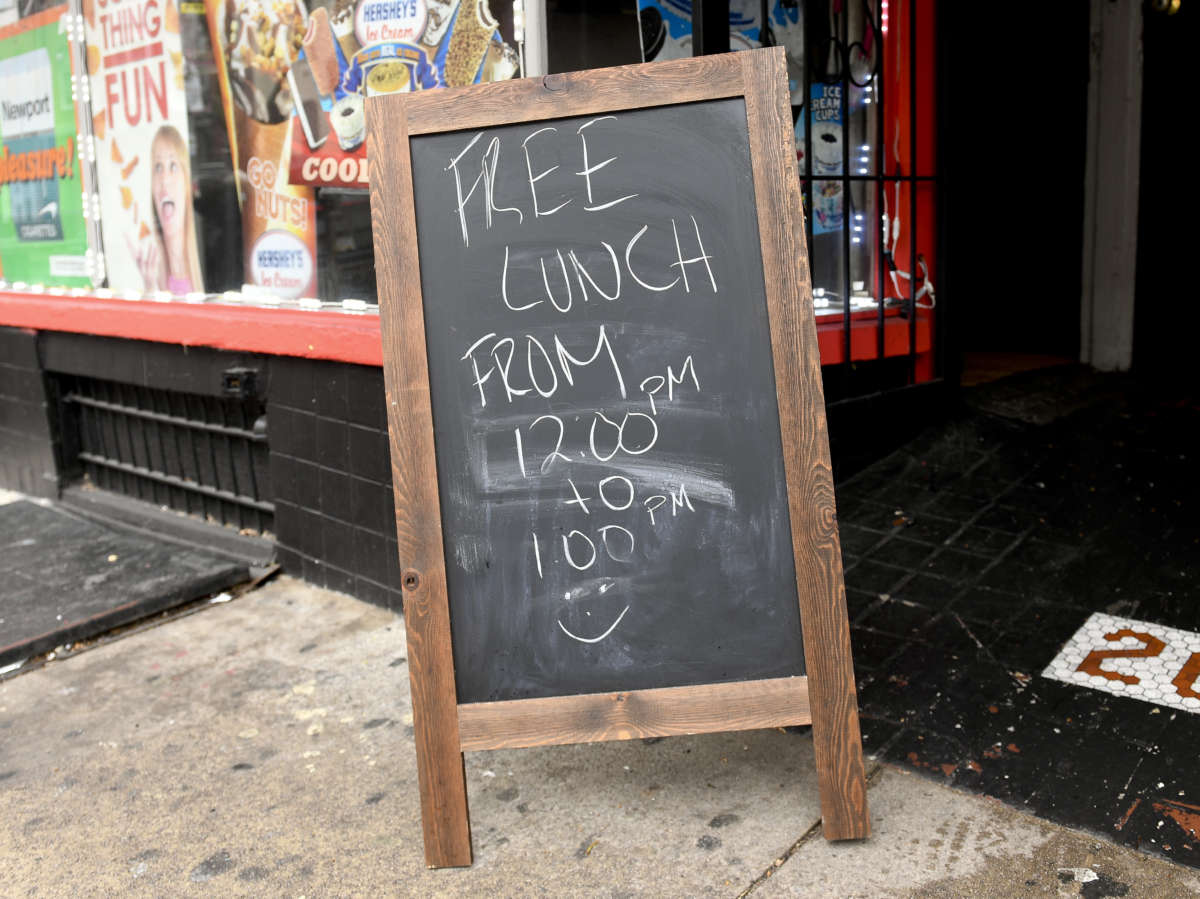 THING
FUN
Newport
Pleasure!
CIGARETTES
HERSHEY'S
Ice Cream
REAL
COOL
GO
NUTS!
HERSHEY'S
Ice Cream
ICE
CREAM
CUPS
FREE
LUNCH
FROM
12:00 PM
TO
1:00 PM